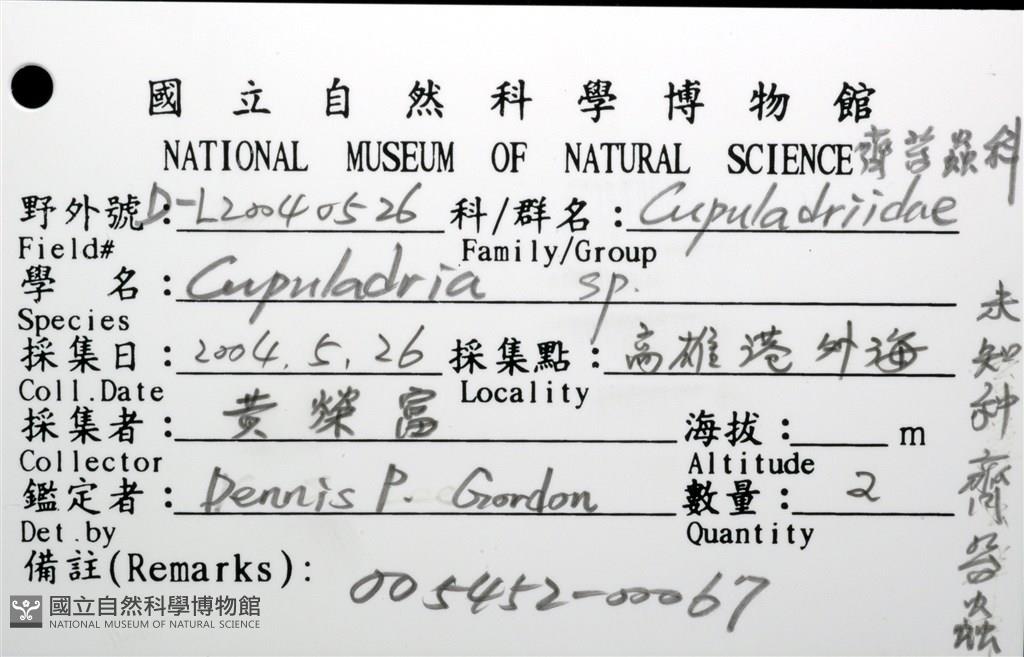 國立自然科學博物館
NATIONAL MUSEUM OF NATURAL SCIENCE 齊苔蟲科
野外號: D-L20040526 科/群名: Cupuladriidae
Field# Family/Group
學名: Cupuladria sp.
Species
採集日: 2004.5.26 採集點: 高雄港外海
Coll.Date Locality
採集者: 黃榮富 海拔: m
Collector Altitude
鑑定者: Dennis P. Gordon 數量: 2
Det.by Quantity
備註(Remarks): 005452-00067
未知種齊苔蟲
國立自然科學博物館
NATIONAL MUSEUM OF NATURAL SCIENCE